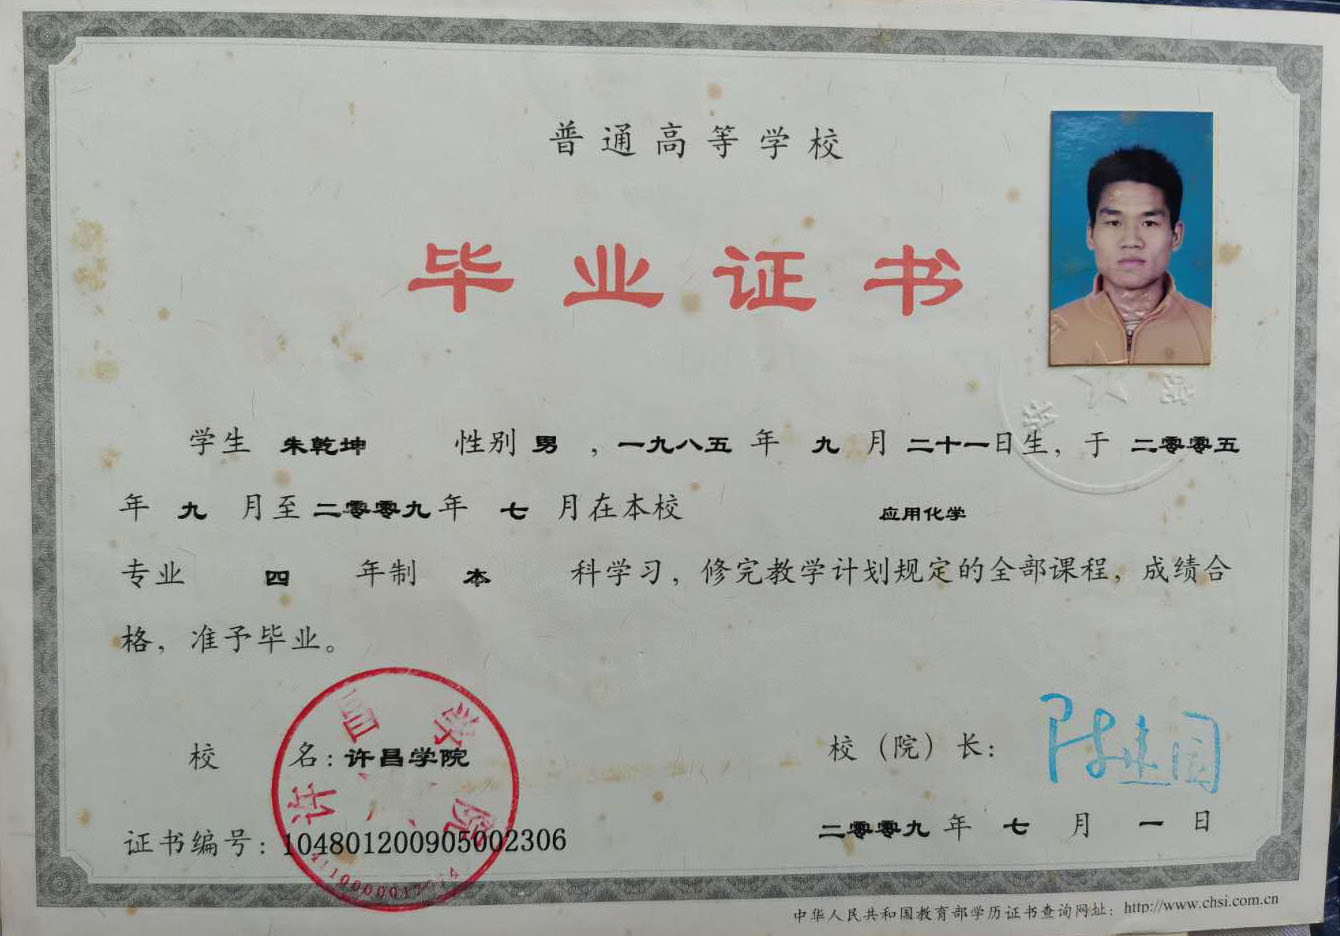 普通高等学校
毕业证书
学生 朱乾坤 性别 男 ，一九八五 年 九 月 二十一日生，于 二零零五
年 九 月至 二零零九 年 七 月在本校 应用化学
专业 四 年制 本 科学习，修完教学计划规定的全部课程，成绩合
格，准予毕业。
校 名：许昌学院
校（院）长：
证书编号：104801200905002306
二零零九 年 七 月 一 日
许昌学院
中华人民共和国教育部学历证书查询网址：http://www.chsi.com.cn